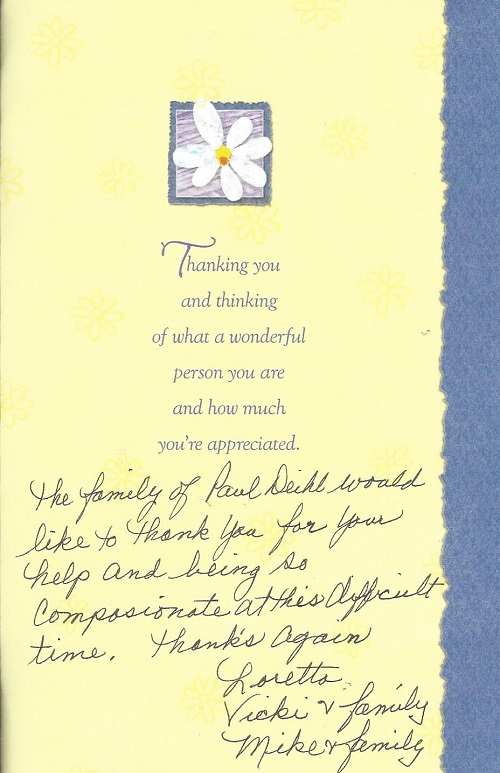 Thanking you
and thinking
of what a wonderful
person you are
and how much
you're appreciated.
The family of Paul Deihl would
like to thank you for your
help and being so
composionate at this difficult
time. Thank's again
Loretta
Vicki & family
Mike & family